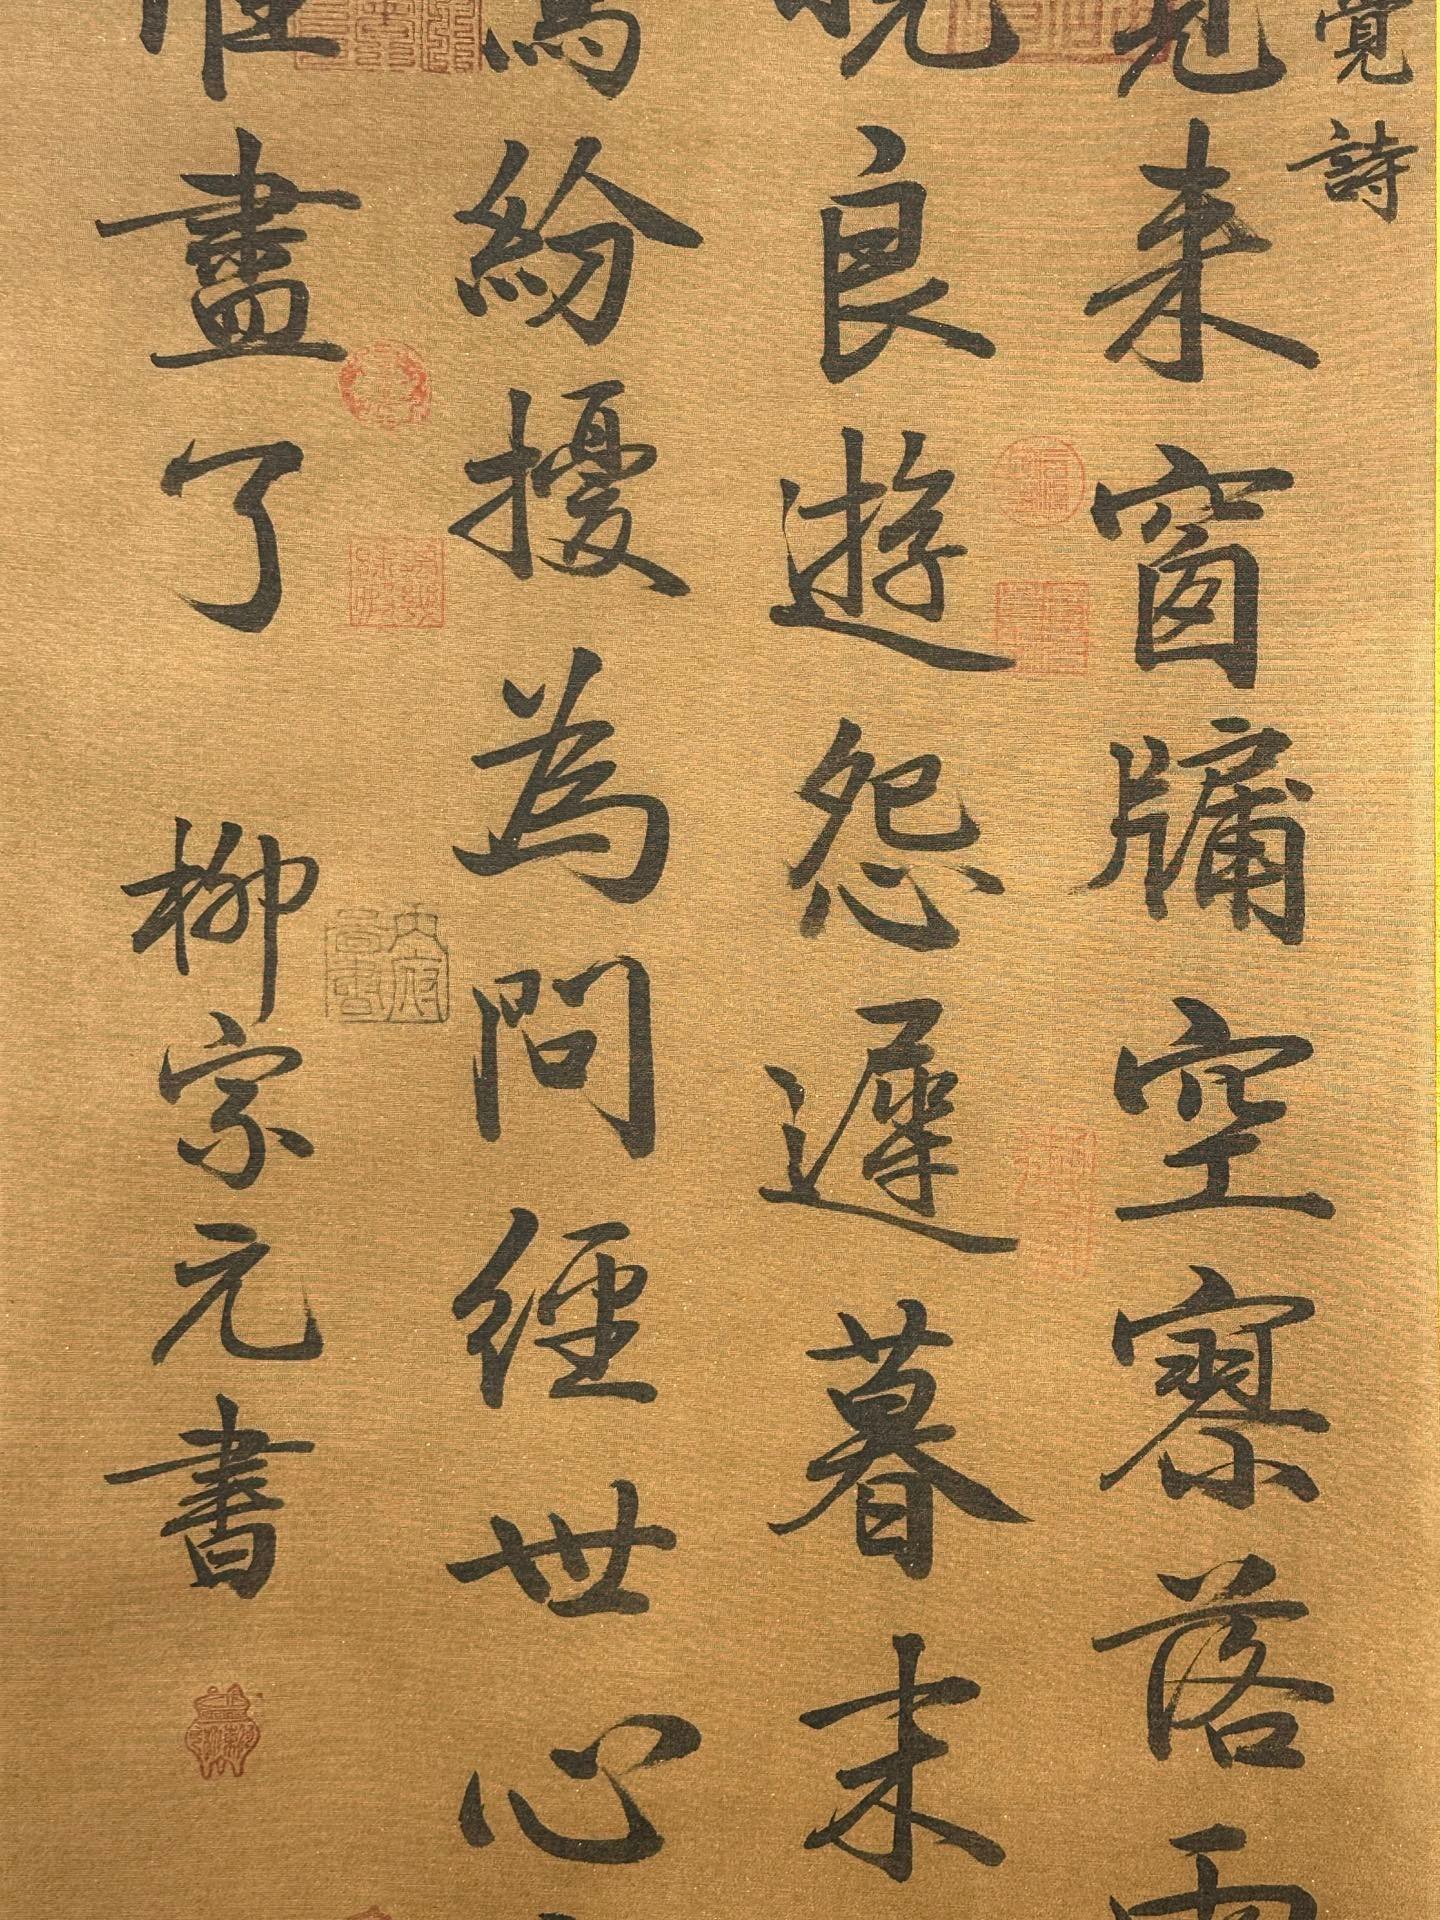 覺詩
覺来窗牖空寥落雨
晓良遊怨遲暮末
為紛擾為問經世心
誰盡了
柳宗元書